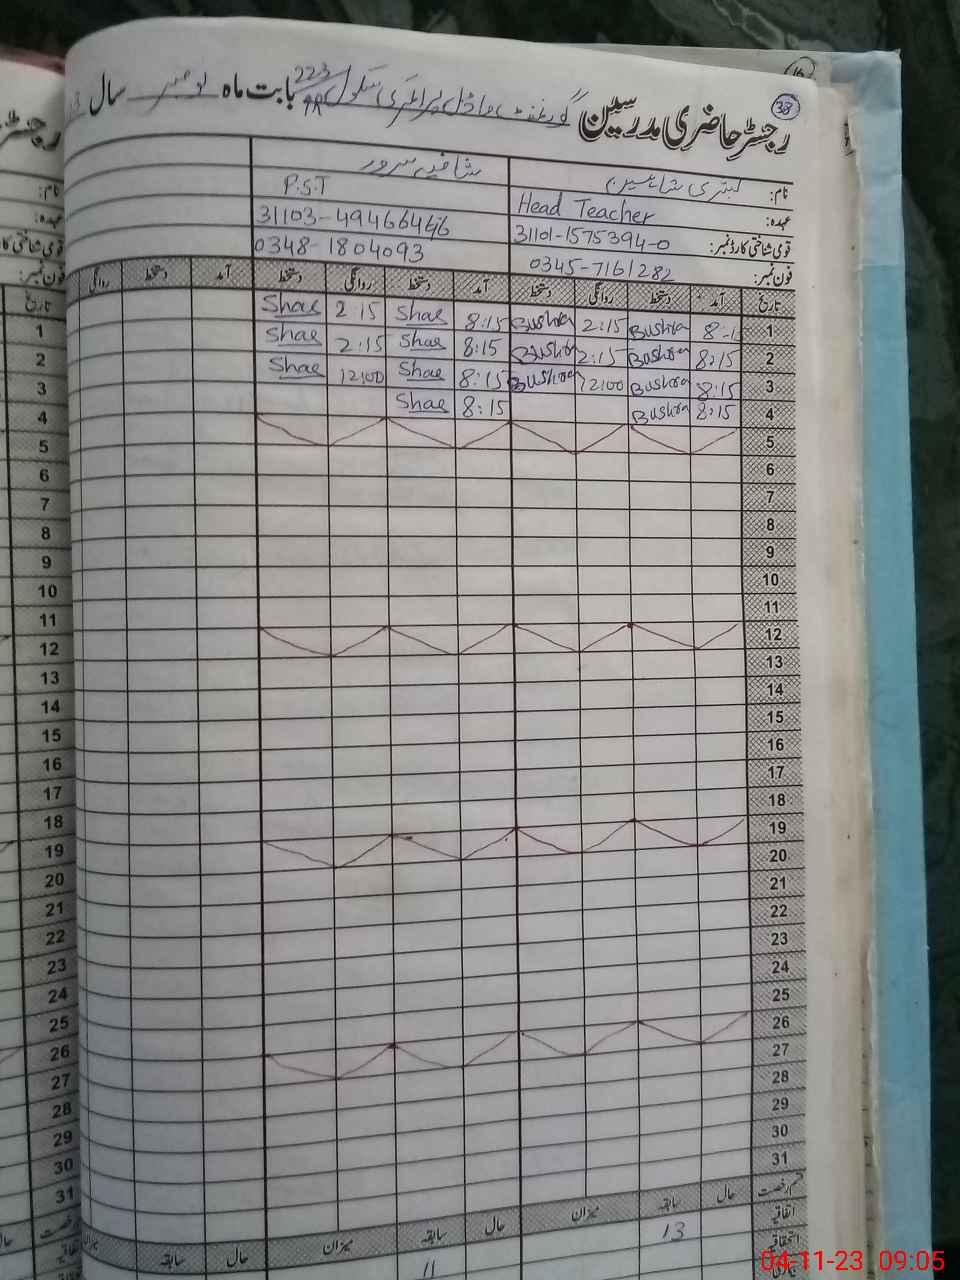 16
38
رجسٹر حاضری مدرسین گورنمنٹ ماڈل پرائمری سکول 223/9R بابت ماہ نومبر سال
نام: بشری شاہین شافیہ سرور
عہدہ: Head Teacher P.S.T
قومی شناختی کارڈ نمبر: 31101-1575394-0 31103-49466446
فون نمبر: 0345-7161282 0348-1804093
تاریخ آمد دستخط روانگی دستخط آمد دستخط روانگی دستخط آمد دستخط روانگی
1 8:1 Bushra 2:15 Bushra 8:15 Shae 2:15 Shae
2 8:15 Bushra 2:15 Bushra 8:15 Shae 2:15 Shae
3 8:15 Bushra 12:00 Bushra 8:15 Shae 12:00 Shae
4 8:15 Bushra 8:15 Shae
5
6
7
8
9
10
11
12
13
14
15
16
17
18
19
20
21
22
23
24
25
26
27
28
29
30
31
قسم رخصت حال سابقہ میزان حال سابقہ میزان حال سابقہ میزان
اتفاقیہ 13 11
استحقاقیہ
تاریخ
1
2
3
4
5
6
7
8
9
10
11
12
13
14
15
16
17
18
19
20
21
22
23
24
25
26
27
28
29
30
31
04-11-23 09:05